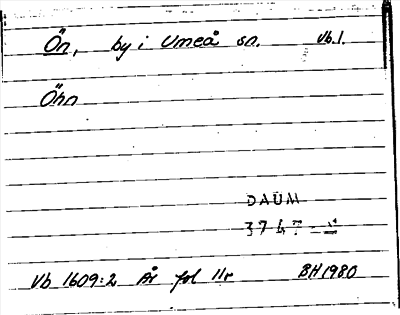 Ön, by i Umeå sn. Vb.l.
Öhn
DAUM
Vb 1609:2 År fol 11r BH 1980